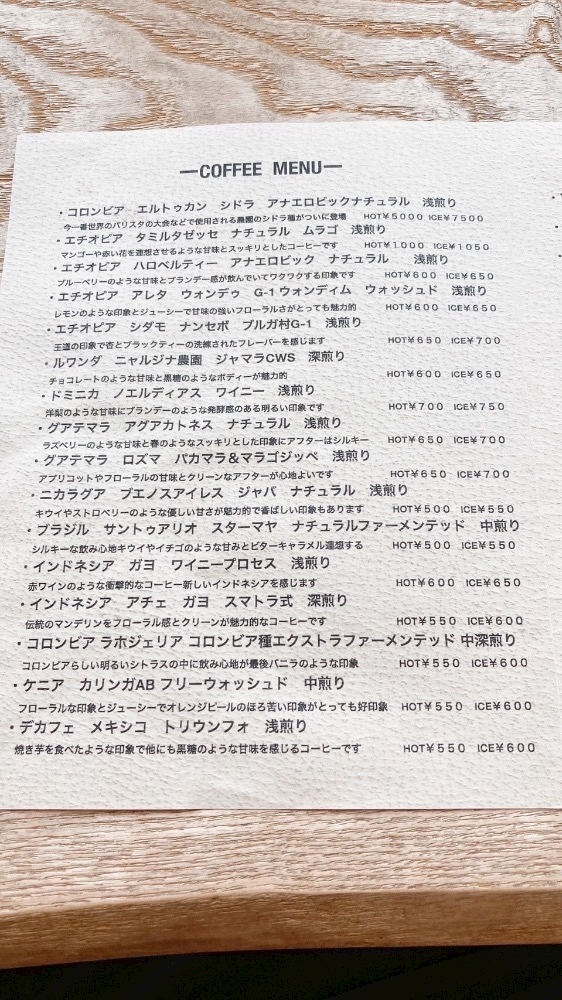 —COFFEE MENU—
・コロンビア エルトゥカン シドラ アナエロビックナチュラル 浅煎り
今一番世界のバリスタの大会などで使用される農園のシドラ種がついに登場 HOT¥5000 ICE¥7500
・エチオピア タミルタゼッセ ナチュラル ムラゴ 浅煎り
マンゴーや赤い花を連想させるような甘味とスッキリとしたコーヒーです HOT¥1000 ICE¥1050
・エチオピア ハロベルティー アナエロビック ナチュラル 浅煎り
ブルーベリーのような甘味とブランデー感が飲んでいてワクワクする印象です HOT¥600 ICE¥650
・エチオピア アレタ ウォンデゥ G-1ウォンディム ウォッシュド 浅煎り
レモンのような印象とジューシーで甘味の強いフローラルさがとっても魅力的 HOT¥600 ICE¥650
・エチオピア シダモ ナンセボ ブルガ村G-1 浅煎り
王道の印象で杏とブラックティーの洗練されたフレーバーを感じます HOT¥650 ICE¥700
・ルワンダ ニャルジナ農園 ジャマラCWS 深煎り
チョコレートのような甘味と黒糖のようなボディーが魅力的 HOT¥600 ICE¥650
・ドミニカ ノエルディアス ワイニー 浅煎り
洋梨のような甘味にブランデーのような発酵感のある明るい印象です HOT¥700 ICE¥750
・グアテマラ アグアカトネス ナチュラル 浅煎り
ラズベリーのような甘味と春のようなスッキリとした印象にアフターはシルキー HOT¥650 ICE¥700
・グアテマラ ロズマ パカマラ&マラゴジッペ 浅煎り
アプリコットやフローラルの甘味とクリーンなアフターが心地よいです HOT¥650 ICE¥700
・ニカラグア ブエノスアイレス ジャバ ナチュラル 浅煎り
キウイやストロベリーのような優しい甘さが魅力的で香ばしい印象もあります HOT¥500 ICE¥550
・ブラジル サントゥアリオ スターマヤ ナチュラルファーメンテッド 中煎り
シルキーな飲み心地キウイやイチゴのような甘みとビターキャラメル連想する HOT¥500 ICE¥550
・インドネシア ガヨ ワイニープロセス 浅煎り
赤ワインのような衝撃的なコーヒー新しいインドネシアを感じます HOT¥600 ICE¥650
・インドネシア アチェ ガヨ スマトラ式 深煎り
伝統のマンデリンをフローラル感とクリーンが魅力的なコーヒーです HOT¥550 ICE¥600
・コロンビア ラホジェリア コロンビア種エクストラファーメンテッド 中深煎り
コロンビアらしい明るいシトラスの中に飲み心地が最後バニラのような印象 HOT¥550 ICE¥600
・ケニア カリンガAB フリーウォッシュド 中煎り
フローラルな印象とジューシーでオレンジピールのほろ苦い印象がとっても好印象 HOT¥550 ICE¥600
・デカフェ メキシコ トリウンフォ 浅煎り
焼き芋を食べたような印象で他にも黒糖のような甘味を感じるコーヒーです HOT¥550 ICE¥600